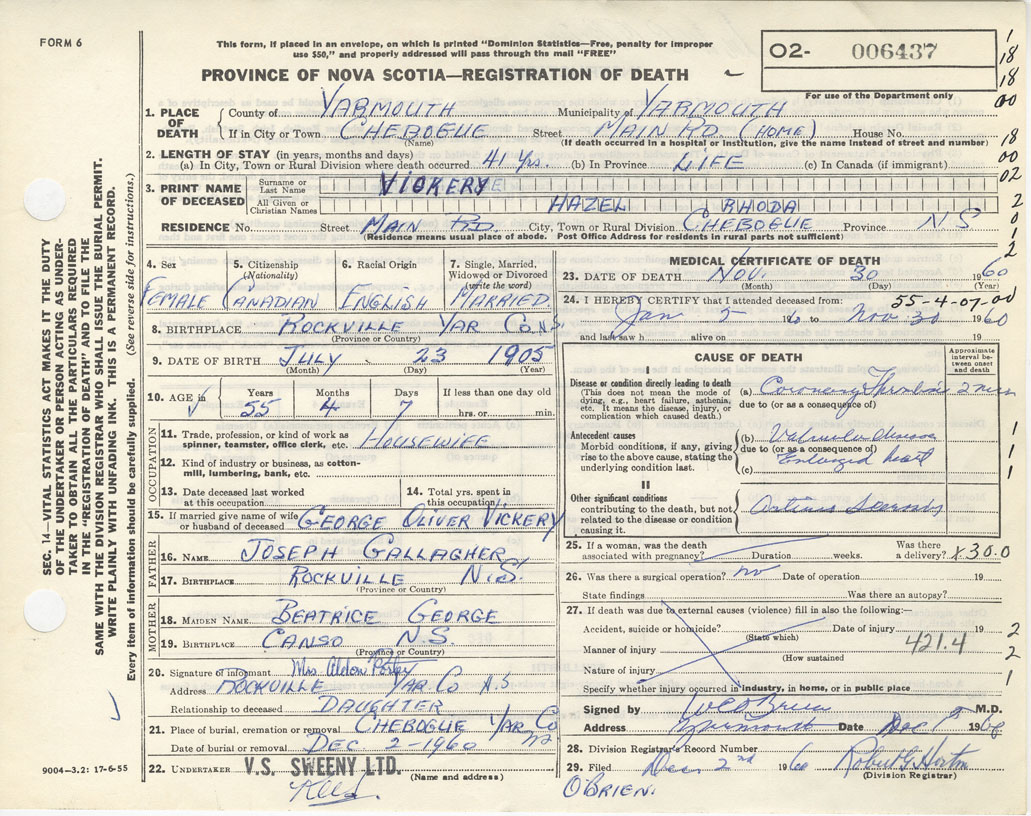 FORM 6
This form, if placed in an envelope, on which is printed "Dominion Statistics—Free, penalty for improper
use $50," and properly addressed will pass through the mail "FREE"
PROVINCE OF NOVA SCOTIA—REGISTRATION OF DEATH
O2- 006437
For use of the Department only
1. PLACE OF DEATH
County of YARMOUTH Municipality of YARMOUTH
If in City or Town CHEBOGUE Street MAIN RD. (HOME) House No.
(Name) (If death occurred in a hospital or institution, give the name instead of street and number)
2. LENGTH OF STAY (in years, months and days)
(a) In City, Town or Rural Division where death occurred 41 Yrs. (b) In Province LIFE (c) In Canada (if immigrant)
3. PRINT NAME OF DECEASED
Surname or Last Name VICKERY
All Given or Christian Names HAZEL RHODA
RESIDENCE No. Street MAIN RD. City, Town or Rural Division CHEBOGUE Province N S
(Residence means usual place of abode. Post Office Address for residents in rural parts not sufficient)
4. Sex 5. Citizenship (Nationality) 6. Racial Origin 7. Single, Married, Widowed or Divorced (write the word)
FEMALE CANADIAN ENGLISH MARRIED
8. BIRTHPLACE ROCKVILLE YAR CO. N.S.
(Province or Country)
9. DATE OF BIRTH JULY 23 1905
(Month) (Day) (Year)
10. AGE Years Months Days If less than one day
55 4 7 hrs. or min.
OCCUPATION
11. Trade, profession, or kind of work as spinner, teamster, office clerk, etc. HOUSEWIFE
12. Kind of industry or business, as cotton-mill, lumbering, bank, etc.
13. Date deceased last worked at this occupation
14. Total yrs. spent in this occupation
15. If married give name of wife or husband of deceased GEORGE OLIVER VICKERY
FATHER
16. NAME JOSEPH GALLAGHER
17. BIRTHPLACE ROCKVILLE N.S.
(Province or Country)
MOTHER
18. MAIDEN NAME BEATRICE GEORGE
19. BIRTHPLACE CANSO N.S.
(Province or Country)
20. Signature of informant Mrs. Aldon
Address ROCKVILLE YAR. CO N.S
Relationship to deceased DAUGHTER
21. Place of burial, cremation or removal CHEBOGUE YAR CO
Date of burial or removal DEC 2-1960 NS
22. UNDERTAKER V.S. SWEENY LTD.
(Name and address)
MEDICAL CERTIFICATE OF DEATH
23. DATE OF DEATH NOV. 30 1960
(Month) (Day) (Year)
24. I HEREBY CERTIFY that I attended deceased from: 55-4-07-00
Jan 5 1960 to Nov 30 1960
and last saw h alive on 19
CAUSE OF DEATH
Approximate interval between onset and death
I
Disease or condition directly leading to death
(This does not mean the mode of dying, e.g., heart failure, asthenia, etc. It means the disease, injury, or complication which caused death.)
(a) Coronary Thrombosis 2
due to (or as a consequence of)
Antecedent causes
Morbid conditions, if any, giving rise to the above cause, stating the underlying condition last.
(b) Valvular disease
due to (or as a consequence of)
(c) Enlarged heart
II
Other significant conditions
contributing to the death, but not related to the disease or condition causing it.
25. If a woman, was the death associated with pregnancy? Duration weeks. Was there a delivery? X30.0
26. Was there a surgical operation? no Date of operation 19
State findings Was there an autopsy?
27. If death was due to external causes (violence) fill in also the following:—
Accident, suicide or homicide? Date of injury 19
(State which)
Manner of injury 421.4
(How sustained
Nature of injury
Specify whether injury occurred in industry, in home, or in public place
Signed by M.D.
Address Yarmouth Date Dec 1st 1960
28. Division Registrar's Record Number
29. Filed Dec 2nd 1960 Robert G Horton
(Division Registrar)
O'BRIEN.
SEC. 14—VITAL STATISTICS ACT MAKES IT THE DUTY
OF THE UNDERTAKER OR PERSON ACTING AS UNDER-
TAKER TO OBTAIN ALL THE PARTICULARS REQUIRED
IN THE "REGISTRATION OF DEATH" AND TO FILE THE
SAME WITH THE DIVISION REGISTRAR WHO SHALL ISSUE THE BURIAL PERMIT.
WRITE PLAINLY WITH UNFADING INK. THIS IS A PERMANENT RECORD.
Every item of information should be carefully supplied. (See reverse side for instructions.)
9004-3.2: 17-6-55
1
18
18
00
18
00
02
2
0
1
2
1
1
1
2
2
1